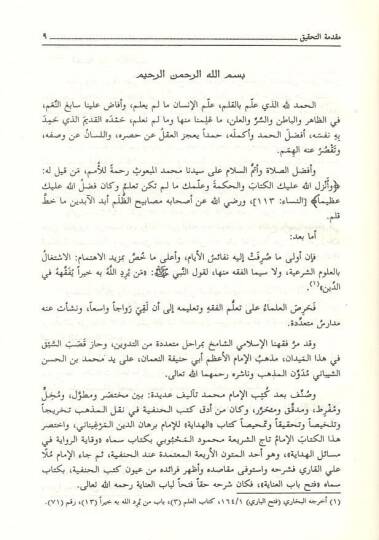 مقدمة التحقيق ـــــــــ ٩
بسم الله الرحمن الرحيم
الحمد لله الذي علّم بالقلم، علّم الإنسان ما لم يعلم، وأفاض علينا سابغ النِّعَم،
في الظاهر والباطن والسِّرِّ والعلن، ما عَلِمنا منها وما لم نعلم، حَمْدَه القديمَ الذي حَمِدَ
بِهِ نفسَه، أفضلَ الحمد وأكملَه، حمداً يعجز العقلُ عن حصره، واللسانُ عن وصفه،
وتَقْصُرُ عنه الهِمَم.
وأفضل الصلاة وأتمُّ السلام على سيدنا محمد المبعوث رحمةً للأُمم، مَن قيل له:
﴿وأَنزل اللهُ عليك الكتابَ والحكمةَ وعلَّمك ما لم تكن تعلمُ وكان فضلُ الله عليك
عظيماً﴾ [النساء: ١١٣]، ورضي الله عن أصحابه مصابيحِ الظُّلَم أبدَ الآبدين ما خطَّ
قلم.
أما بعد:
فإن أولى ما صُرِفَتْ إليه نفائسُ الأيام، وأعلى ما خُصَّ بمزيد الاهتمام: الاشتغالُ
بالعلوم الشرعية، ولا سيما الفقه منها، لقول النَّبي ﷺ: «مَن يُرِدِ اللهُ به خيراً يُفَقِّههُ في
الدِّين»(١).
فحَرِصَ العلماءُ على تعلُّم الفقهِ وتعليمه إلى أن لَقِيَ رَواجاً واسعاً، ونشأت عنه
مدارسُ متعدِّدة.
وقد مرَّ فقهنا الإسلامي الشامخ بمراحل متعددة من التدوين، وحاز قَصَبَ السَّبْق
في هذا المَيْدان، مذهبُ الإمام الأعظم أبي حنيفة النعمان، على يد محمد بن الحسن
الشيباني مُدَوِّنِ المذهب وناشرِه رحمهما الله تعالى.
وصُنِّف بعد كُتُبِ الإمام محمد تآليف عديدة: بين مختصَر ومطوَّل، ومُخِلٍّ
ومُفْرِط، ومدقَّق ومتحَرَّر، وكان من أدق كتب الحنفية في نقل المذهب تخريجاً
وتلخيصاً وتحقيقاً وتمحيصاً كتاب «الهداية» للإمام برهان الدين المَرْغِيناني، واختصر
هذا الكتابَ الإمامُ تاج الشريعة محمود المَحْبُوبي بكتاب سماه «وقاية الرواية في
مسائل الهداية»، وهو أحد المتون الأربعة المعتمدة عند الحنفية، ثم جاء الإمام مُلّا
علي القاري فشرحه واستوفى مقاصده وأظهر فرائده من عيون كتب الحنفية، بكتاب
سماه «فتح باب العناية»، فكان شرحه حقاً فتحاً لباب العناية رحمه الله تعالى.
(١) أخرجه البخاري (فتح الباري) ١٦٤/١، كتاب العلم (٣)، باب من يُرِد الله به خيراً (١٣)، رقم (٧١).